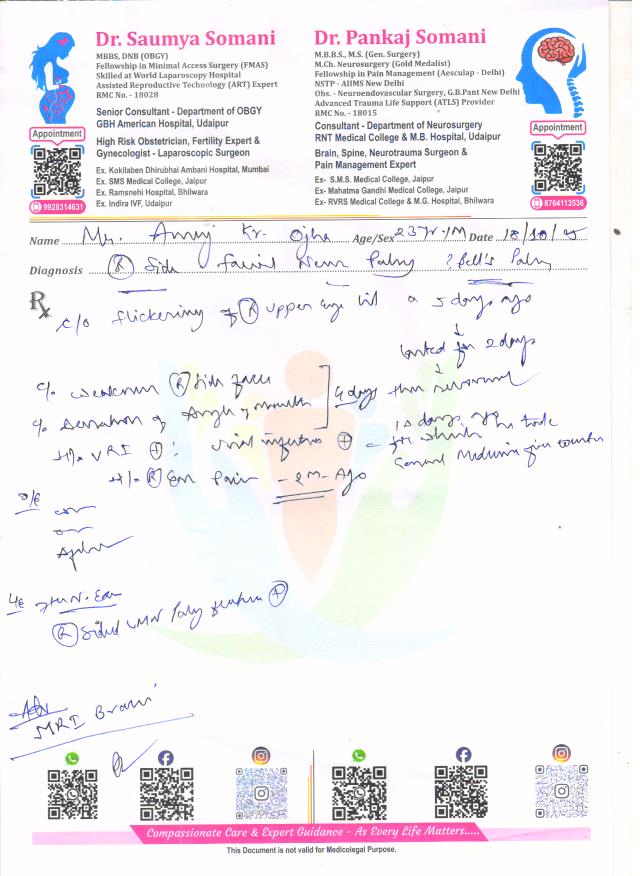 Dr. Saumya Somani
MBBS, DNB (OBGY)
Fellowship in Minimal Access Surgery (FMAS)
Skilled at World Laparoscopy Hospital
Assisted Reproductive Technology (ART) Expert
RMC No. - 18028
Senior Consultant - Department of OBGY
GBH American Hospital, Udaipur
High Risk Obstetrician, Fertility Expert &
Gynecologist - Laparoscopic Surgeon
Ex. Kokilaben Dhirubhai Ambani Hospital, Mumbai
Ex. SMS Medical College, Jaipur
Ex. Ramsnehi Hospital, Bhilwara
Ex. Indira IVF, Udaipur
Appointment
9928314631
Dr. Pankaj Somani
M.B.B.S., M.S. (Gen. Surgery)
M.Ch. Neurosurgery (Gold Medalist)
Fellowship in Pain Management (Aesculap - Delhi)
NSTP - AIIMS New Delhi
Obs. - Neuroendovascular Surgery, G.B.Pant New Delhi
Advanced Trauma Life Support (ATLS) Provider
RMC No. - 18015
Consultant - Department of Neurosurgery
RNT Medical College & M.B. Hospital, Udaipur
Brain, Spine, Neurotrauma Surgeon &
Pain Management Expert
Ex- S.M.S. Medical College, Jaipur
Ex- Mahatma Gandhi Medical College, Jaipur
Ex- RVRS Medical College & M.G. Hospital, Bhilwara
Appointment
8764113536
Name Mr. Kr. Ojha Age/Sex 23Yr/M Date 18/10/25
Diagnosis (R) Side Facial Nerve Palsy ? Bell's Palsy
Rx
c/o flickering of (R) upper eye lid 5 days ago
↓
lasted for 2 days
↓
c/o weakness (R) side face
c/o deviation of angle of mouth
4 days then
H/o URI (+) : viral infection (+) 10 days ago
for which
General Medicine
H/o (R) Ear Pain - 2M - Ago
O/E
(R) sided LMN Palsy feature (+)
Adv
MRI Brain
Compassionate Care & Expert Guidance - As Every Life Matters.....
This Document is not valid for Medicolegal Purpose.